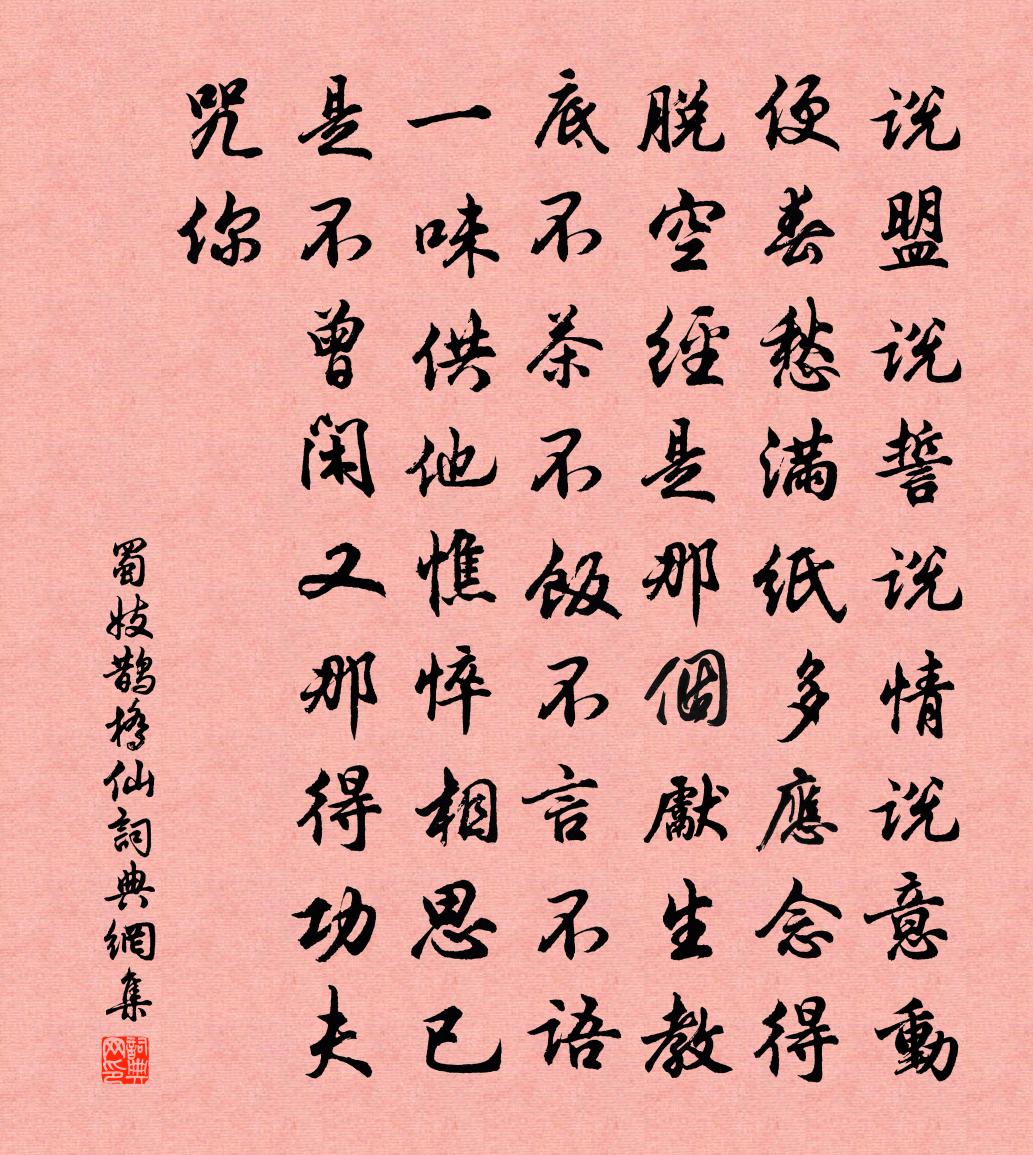 说盟说誓说情说意動
便春愁满紙多應念得
脱空經是那個獻生教
底不茶不飯不言不語
一味供他憔悴相思已
是不曾闲又那得功夫
咒你
蜀妓鹊橋仙詞典網集
詞典网印